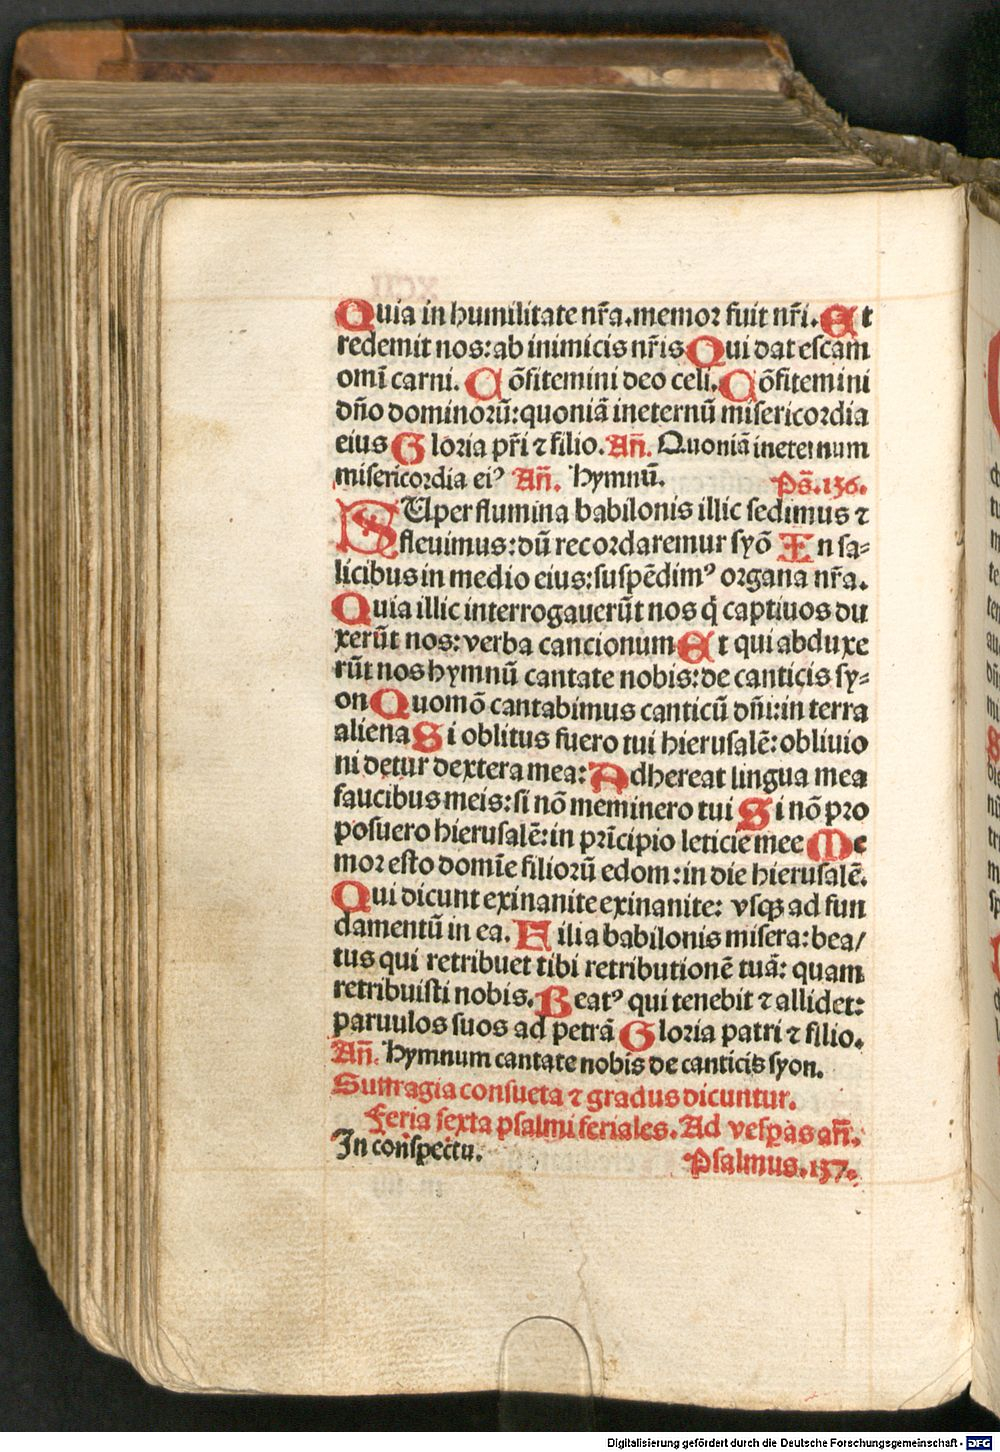 Quia in humilitate nr̄a.memor fuit nr̄i.Et
redemit nos:ab inimicis nr̄is Qui dat escam
omī carni. Cōfitemini deo celi.Cōfitemini
dn̄o dominorū:quoniā ineternū misericordia
eius Gloria pr̄i ⁊ filio.An̄. Quoniā ineternum
misericordia eiꝰ An̄. hymnū. Ps̄.136.
SUper flumina babilonis illic sedimus ⁊
fleuimus:dū recordaremur syō In sa⸗
licibus in medio eius:suspēdimꝰ organa nr̄a.
Quia illic interrogauerūt nos q̇ captiuos du
xerūt nos:verba cancionum Et qui abduxe
rūt nos hymnū cantate nobis:de canticis sy⸗
on Quomō cantabimus canticū dn̄i:in terra
aliena Si oblitus fuero tui hierusalē:obliuio
ni detur dextera mea:Adhereat lingua mea
faucibus meis:si nō meminero tui Si nō pro
posuero hierusalē:in prīcipio leticie mee Me
mor esto domīe filiorū edom:in die hierusalē.
Qui dicunt exinanite exinanite: vsqꝫ ad fun
damentū in ea. Filia babilonis misera:bea/
tus qui retribuet tibi retributionē tuā: quam
retribuisti nobis.Beatꝰ qui tenebit ⁊ allidet:
paruulos suos ad petrā Gloria patri ⁊ filio.
An̄. Hymnum cantate nobis de canticis syon.
Suffragia consueta ⁊ gradus dicuntur.
Feria sexta psalmi feriales.Ad vesꝑas an̄.
In conspectu. Psalmus.137.
Digitalisierung gefördert durch die Deutsche Forschungsgemeinschaft - DFG